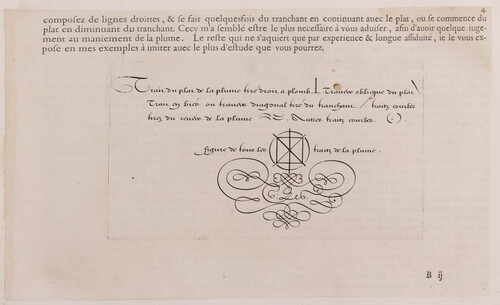 4
composez de lignes droittes, & se fait quelquesfois du tranchant en continuant auec le plat, ou se commence du
plat en diminuant du tranchant. Cecy m'a semblé estre le plus necessaire à vous aduiser, afin d'auoir quelque iuge-
ment au maniement de la plume. Le reste qui ne s'aquiert que par experience & longue assiduité, ie le vous ex-
pose en mes exemples à imiter auec le plus d'estude que vous pourrez.
Trait du plat de la plume tiré droit a plomb Trauers oblique du plat
Trait en biais ou trauers diagonal tiré du tranchant traitz courbes
tirez du reuers de la plume Autres traitz courbes.
figure de tous les traitz de la plume.
B ij